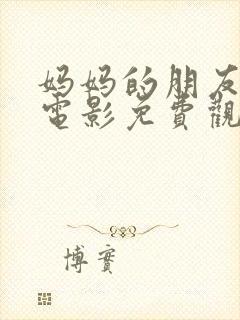 妈妈的朋友
電影免費觀
博實